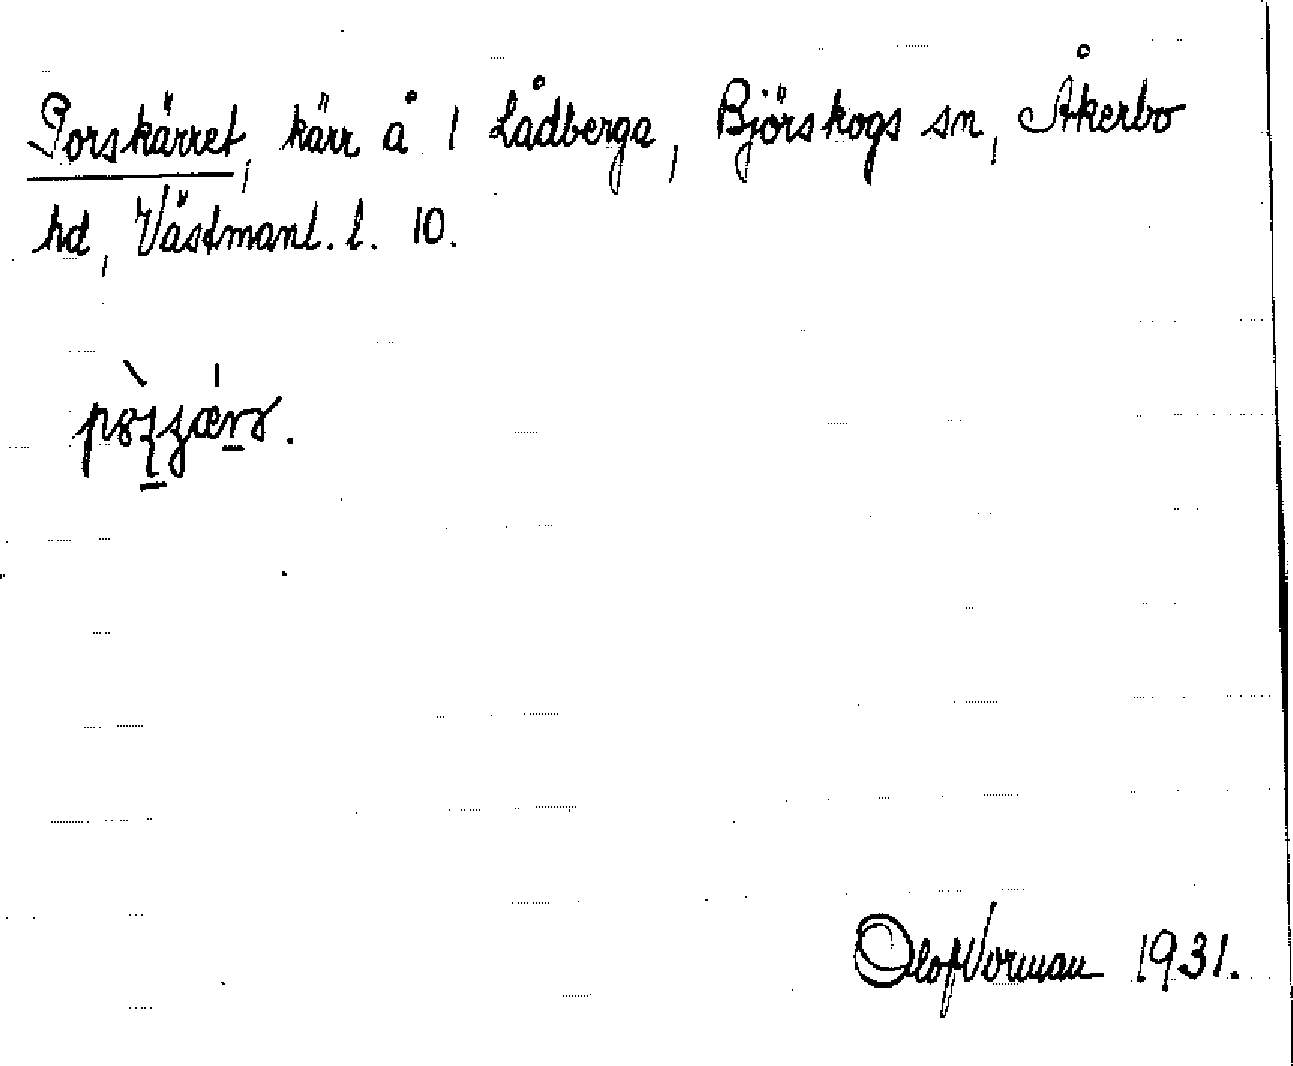 Porskärret, kärr å 1 Lådberga, Björskogs sn, Åkerbo
hd, Västmanl. l. 10.
Olof Norman 1931.